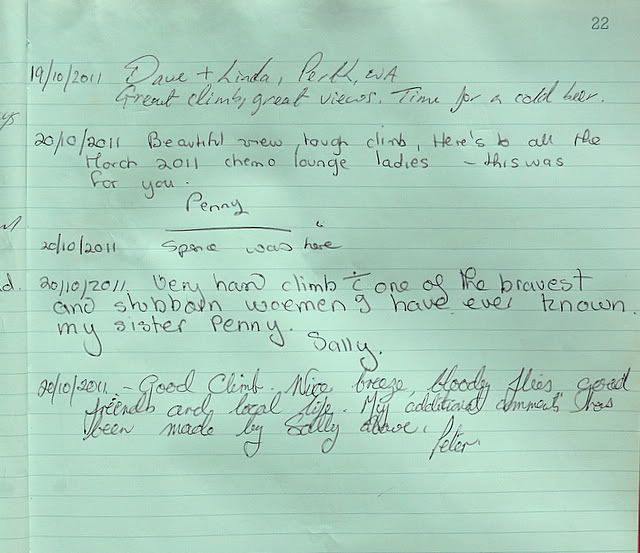 22
19/10/2011 Dave + Linda, Perth, WA
Great climb, great views. Time for a cold beer.
20/10/2011 Beautiful view, tough climb, Here's to all the
March 2011 chemo lounge ladies - this was
for you.
Penny
20/10/2011 was here
d. 20/10/2011. Very hard climb c̄ one of the bravest
and stubborn woemen I have ever known.
my sister Penny.
Sally.
20/10/2011 - Good Climb. Nice breeze, bloody flies, good
friends and local life. My additional comment has
been made by Sally above.
Peter